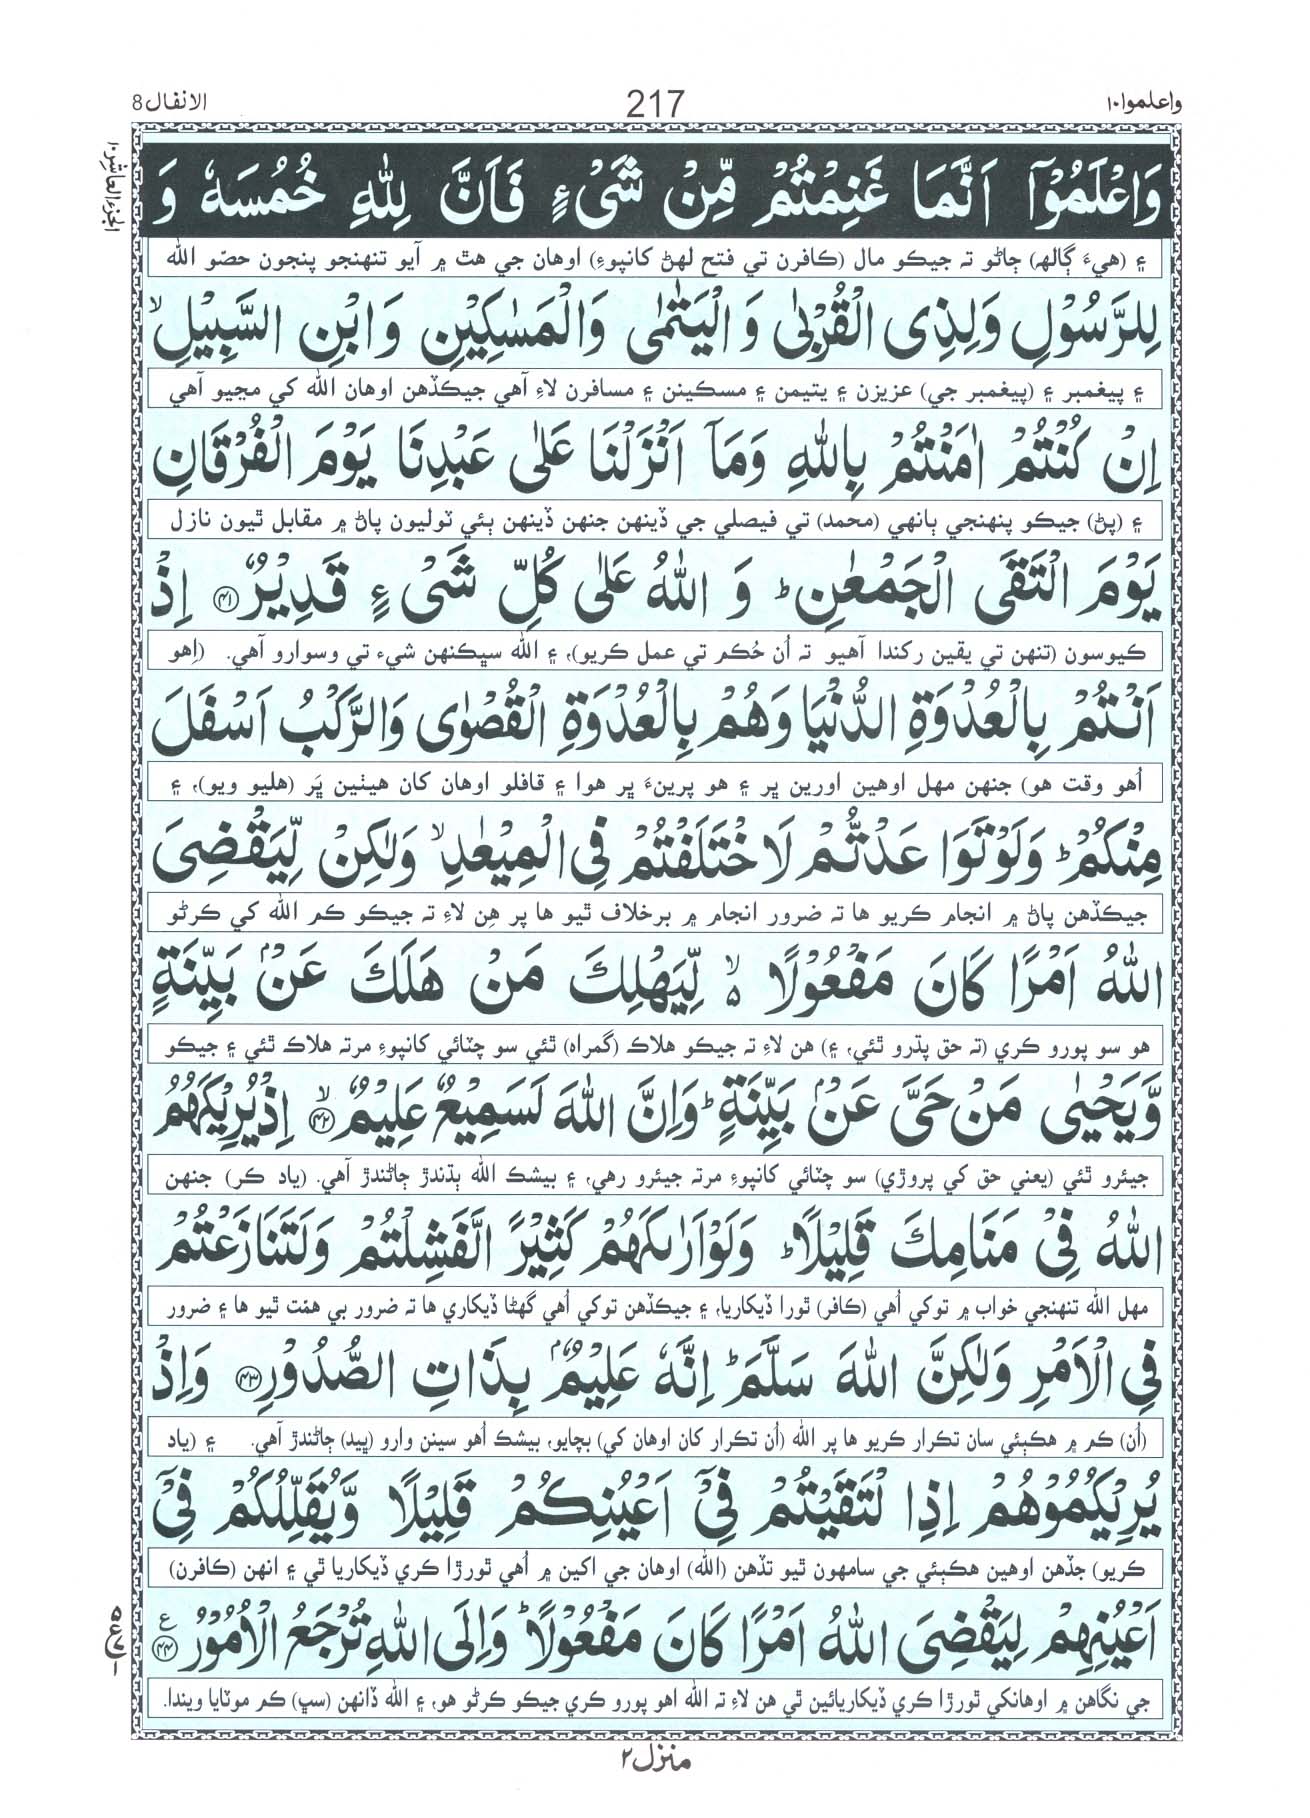 واعلموا ١٠
217
الانفال 8
الجزء العاشر ١٠
وَاعْلَمُوْۤا اَنَّمَا غَنِمْتُمْ مِّنْ شَیْءٍ فَاَنَّ لِلّٰهِ خُمُسَهٗ وَ
۽ (هيءَ ڳالهہ) ڄاڻو تہ جيڪو مال (ڪافرن تي فتح لهڻ کانپوءِ) اوهان جي هٿ ۾ آيو تنهنجو پنجون حصّو الله
لِلرَّسُوْلِ وَلِذِی الْقُرْبٰى وَالْیَتٰمٰى وَالْمَسٰكِیْنِ وَابْنِ السَّبِیْلِ ۙ
۽ پيغمبر ۽ (پيغمبر جي) عزيزن ۽ يتيمن ۽ مسڪينن ۽ مسافرن لاءِ آهي جيڪڏهن اوهان الله کي مڃيو آهي
اِنْ كُنْتُمْ اٰمَنْتُمْ بِاللّٰهِ وَمَاۤ اَنْزَلْنَا عَلٰى عَبْدِنَا یَوْمَ الْفُرْقَانِ
۽ (پڻ) جيڪو پنهنجي ٻانهي (محمد) تي فيصلي جي ڏينهن جنهن ڏينهن ٻئي ٽوليون پاڻ ۾ مقابل ٿيون نازل
یَوْمَ الْتَقَى الْجَمْعٰنِ ؕ وَ اللّٰهُ عَلٰى كُلِّ شَیْءٍ قَدِیْرٌ ﴿۴۱﴾ اِذْ
ڪيوسون (تنهن تي يقين رکندا آهيو تہ اُن حُڪم تي عمل ڪريو)، ۽ الله سڀڪنهن شيء تي وسوارو آهي. (اِهو
اَنْتُمْ بِالْعُدْوَةِ الدُّنْیَا وَهُمْ بِالْعُدْوَةِ الْقُصْوٰى وَالرَّكْبُ اَسْفَلَ
اُهو وقت هو) جنهن مهل اوهين اورين ڀر ۽ هو پرينءَ ڀر هوا ۽ قافلو اوهان کان هيٺين ڀَر (هليو ويو)، ۽
مِنْكُمْ ؕ وَلَوْ تَوَاعَدْتُّمْ لَاخْتَلَفْتُمْ فِی الْمِیْعٰدِ ۙ وَلٰكِنْ لِّیَقْضِیَ
جيڪڏهن پاڻ ۾ انجام ڪريو ها تہ ضرور انجام ۾ برخلاف ٿيو ها پر هِن لاءِ تہ جيڪو ڪم الله کي ڪرڻو
اللّٰهُ اَمْرًا كَانَ مَفْعُوْلًا ۙ۵ لِّیَهْلِكَ مَنْ هَلَكَ عَنْۢ بَیِّنَةٍ
هو سو پورو ڪري (تہ حق پڌرو ٿئي، ۽) هن لاءِ تہ جيڪو هلاڪ (گمراه) ٿئي سو چٽائي کانپوءِ مرتہ هلاڪ ٿئي ۽ جيڪو
وَّیَحْیٰى مَنْ حَیَّ عَنْۢ بَیِّنَةٍ ؕ وَاِنَّ اللّٰهَ لَسَمِیْعٌ عَلِیْمٌ ﴿۴۲﴾ ۙ اِذْ یُرِیْكَهُمُ
جيئرو ٿئي (يعني حق کي پروڙي) سو چٽائي کانپوءِ مرتہ جيئرو رهي، ۽ بيشڪ الله ٻڌندڙ ڄاڻندڙ آهي. (ياد ڪر) جنهن
اللّٰهُ فِیْ مَنَامِكَ قَلِیْلًا ؕ وَلَوْ اَرٰىكَهُمْ كَثِیْرًا لَّفَشِلْتُمْ وَلَتَنَازَعْتُمْ
مهل الله تنهنجي خواب ۾ توکي اُهي (ڪافر) ٿورا ڏيکاريا، ۽ جيڪڏهن توکي اُهي گهڻا ڏيکاري ها تہ ضرور بي همّت ٿيو ها ۽ ضرور
فِی الْاَمْرِ وَلٰكِنَّ اللّٰهَ سَلَّمَ ؕ اِنَّهٗ عَلِیْمٌۢ بِذَاتِ الصُّدُوْرِ ﴿۴۳﴾ وَاِذْ
(اُن) ڪم ۾ هڪٻئي سان تڪرار ڪريو ها پر الله (اُن تڪرار کان اوهان کي) بچايو، بيشڪ اُهو سينن وارو (ڀيد) ڄاڻندڙ آهي. ۽ (ياد
یُرِیْكُمُوْهُمْ اِذِ الْتَقَیْتُمْ فِیْۤ اَعْیُنِكُمْ قَلِیْلًا وَّیُقَلِّلُكُمْ فِیْۤ
ڪريو) جڏهن اوهين هڪٻئي جي سامهون ٿيو تڏهن (الله) اوهان جي اکين ۾ اُهي ٿورڙا ڪري ڏيکاريا ٿي ۽ انهن (ڪافرن)
اَعْیُنِهِمْ لِیَقْضِیَ اللّٰهُ اَمْرًا كَانَ مَفْعُوْلًا ؕ وَاِلَى اللّٰهِ تُرْجَعُ الْاُمُوْرُ ﴿۴۴﴾ ع
جي نگاهن ۾ اوهانکي ٿورڙا ڪري ڏيکاريائين ٿي هن لاءِ تہ الله اهو پورو ڪري جيڪو ڪرڻو هو، ۽ الله ڏانهن (سڀ) ڪم موٽايا ويندا.
منزل ۲